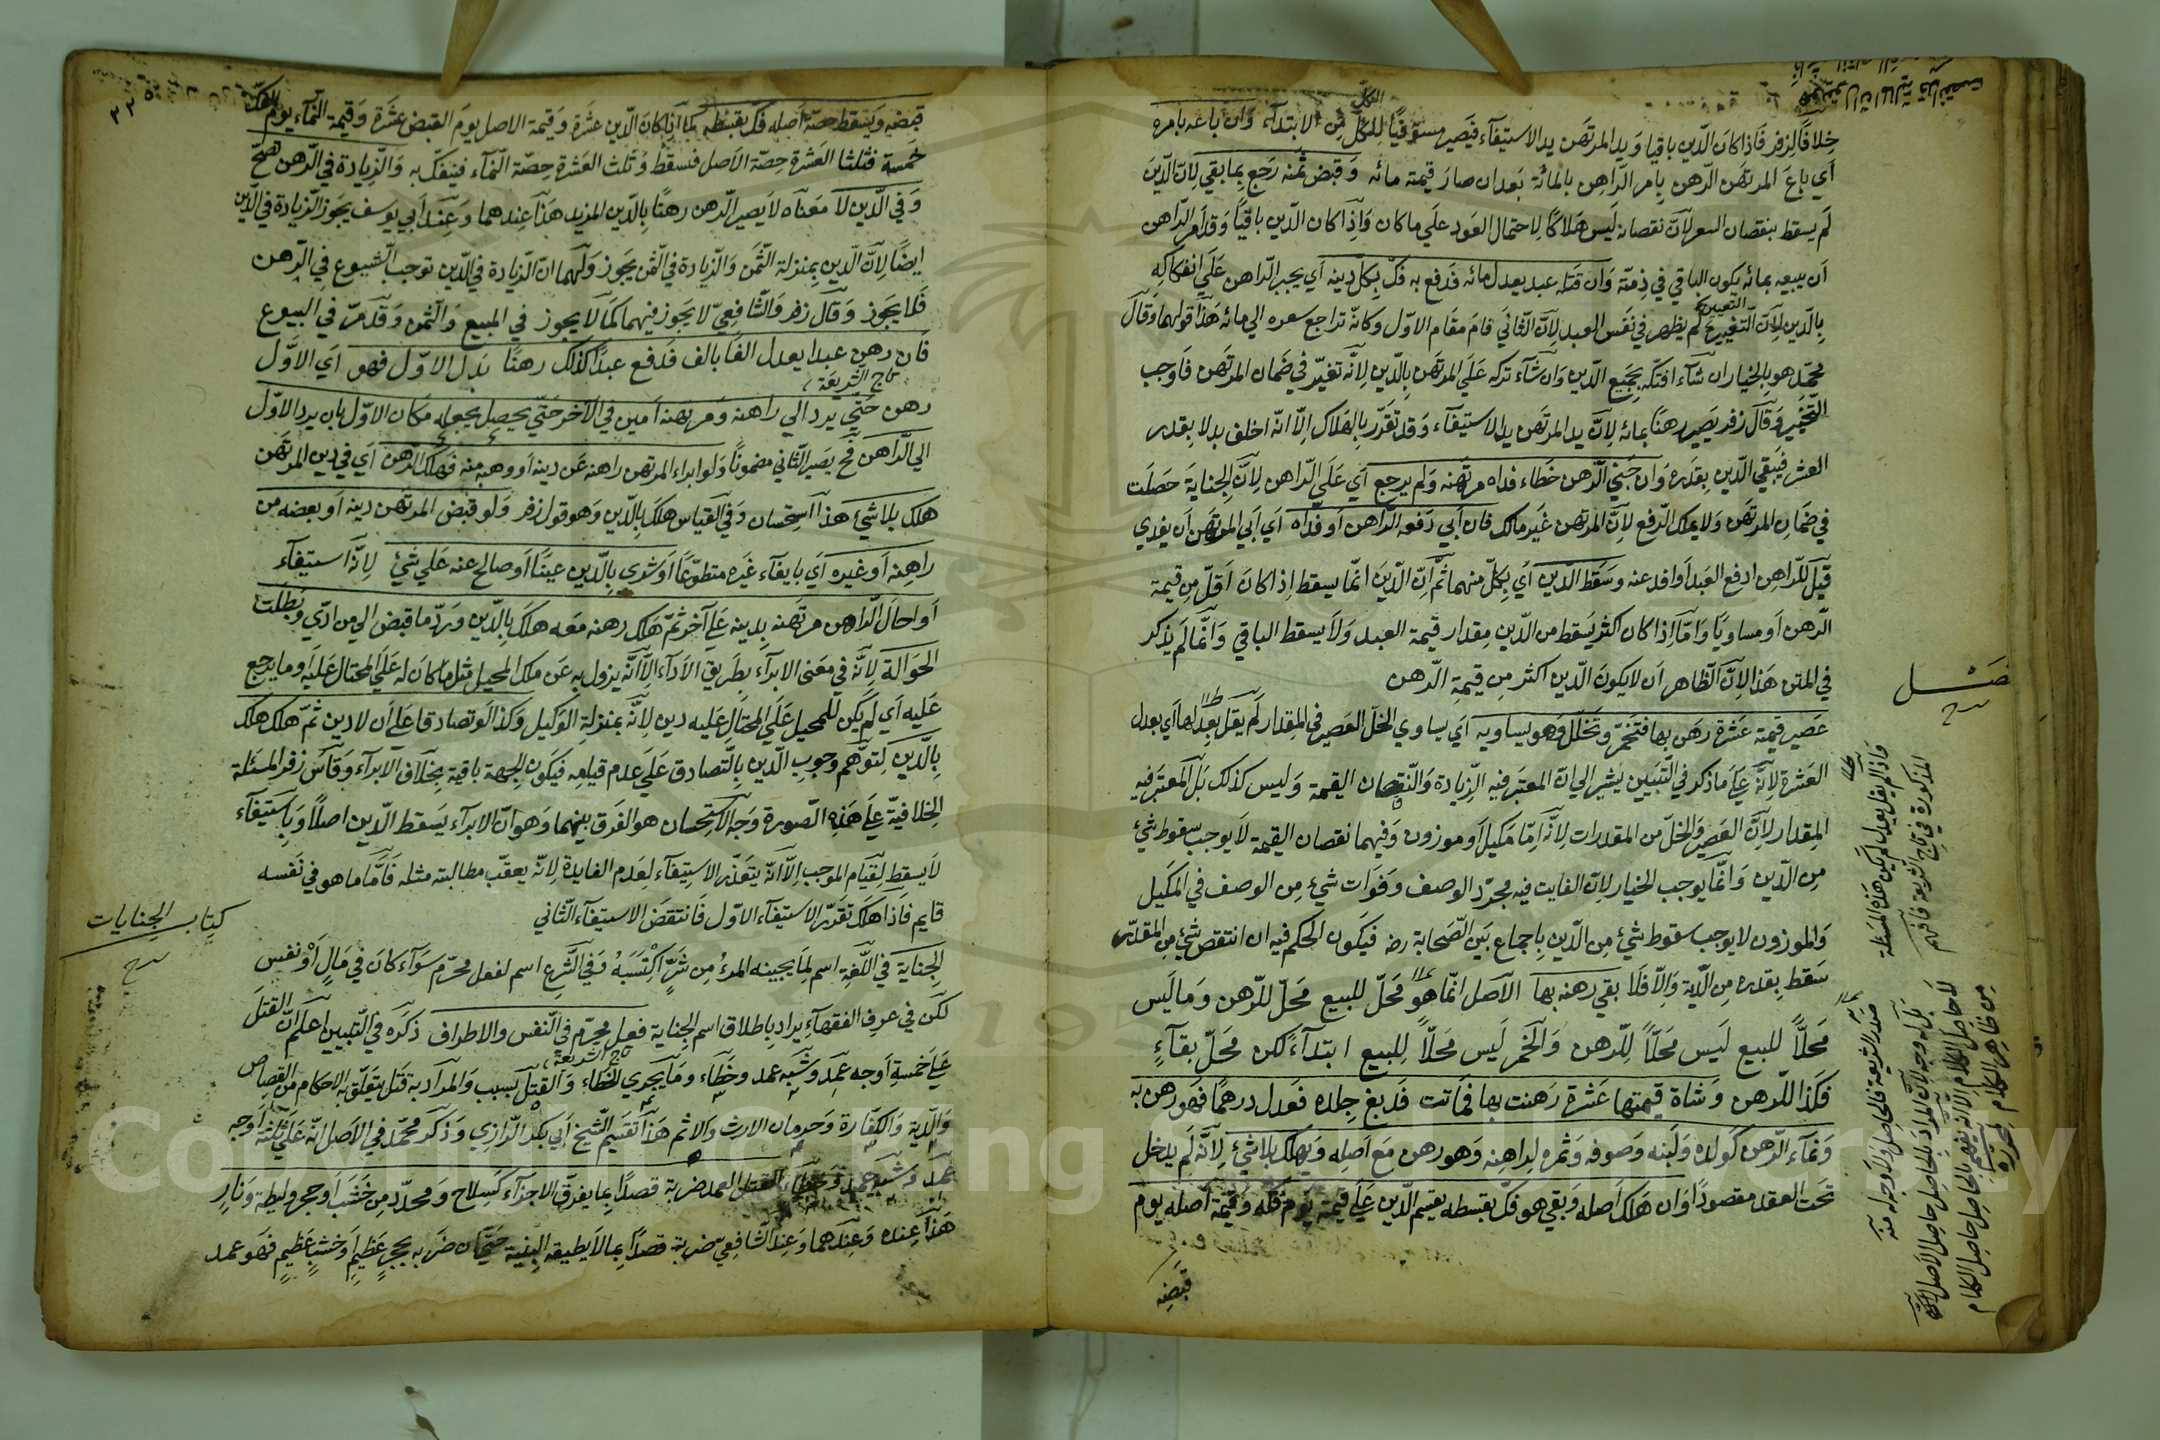 خلافا لزفر فاذا كان الدين باقيا ويد المرتهن يد الاستيفاء فيصير مستوفيا للكل من الابتداء وان باعه بامره
اي باع المرتهن الرهن بامر الراهن بالمائة بعد ان صار قيمته مائه وقبض ثمنه رجع بما بقي لان الدين
لم يسقط بنقصان السعر لان نقصانه ليس هلاكا لاحتمال العود علي ما كان واذا كان الدين باقيا وقد امر الراهن
ان يبيعه بمائه يكون الباقي في ذمته وان قتله عبد يعدل مائه فدفع به فك بكل دينه اي يجبر الراهن علي انفكاكه
بالدين لان التغيير لم يظهر في نفس العبد لان الثاني قام مقام الاول وكانه تراجع سعره الي مائه هذا قولهما وقال
محمد هو بالخيار ان شاء افتكه بجميع الدين وان شاء تركه علي المرتهن بالدين لانه تغير في ضمان المرتهن فاوجب
التخيير وقال زفر يصير رهنا بمائه لان يد المرتهن يد الاستيفاء وقد تقرر بالهلاك الا انه اخلف بدلا بقدر
العشر فيبقي الدين بقدره وان جني الرهن خطاء فداه مرتهنه ولم يرجع اي علي الراهن لان الجناية حصلت
في ضمان المرتهن ولا يملك الدفع لان المرتهن غير مالك فان ابي دفعه الراهن او فداه اي ابي المرتهن ان يفدي
قيل للراهن ادفع العبد او افد عنه وسقط الدين اي بكل منهما ثم ان الدين انما يسقط اذا كان اقل من قيمة
الرهن او مساويا واما اذا كان اكثر يسقط من الدين مقدار قيمة العبد ولا يسقط الباقي وانما لم يذكر
في المتن هذا لان الظاهر ان لا يكون الدين اكثر من قيمة الرهن
فصل
عصير قيمته عشرة رهن بها فتخمر وتخلل وهو يساويه اي يساوي الخل العصير في المقدار لم يقل بعدلها اي يعدل
العشرة لانه علي ما ذكر في التبيين يشير الي ان المعتبر فيه الزيادة والنقصان القيمة وليس كذلك بل المعتبر فيه
المقدار لان العصير والخل من المقدرات لانه اما مكيل او موزون وفيهما نقصان القيمة لا يوجب سقوط شئ
من الدين وانما يوجب الخيار لان الفايت فيه مجرد الوصف وفوات شئ من الوصف في المكيل
والموزون لا يوجب سقوط شئ من الدين باجماع بين الصحابة رضه فيكون الحكم فيه ان انتقص شئ من المقدر
سقط بقدره من الدية والا فلا بقي رهنه بها الاصل انما هو محل للبيع محل للرهن وما ليس
محلا للبيع ليس محلا للرهن والخمر ليس محلا للبيع ابتداء لكن محل بقاء
فكذا للرهن وشاة قيمتها عشرة رهنت بها فماتت فدبغ جلده فعدل درهما فهو رهن به
ونماء الرهن كولده ولبنه وصوفه وثمره لراهنه وهو رهن مع اصله ويهلك بلا شئ لانه لم يدخل
تحت العقد مقصودا وان هلك اصله وبقي هو فك بقسطه يقسم الدين علي قيمته يوم فكه وقيمة اصله يوم
قبضه
واذا لم يقل يعدل لم يكن هذه المسئلة
المذكورة في تاج الشريعة فافهم
قبضه ويسقط حصة اصله فك بقسطه كما اذا كان الدين عشرة وقيمة الاصل يوم القبض عشرة وقيمة النماء يوم الفك
خمسة فثلثا العشرة حصة الاصل فسقط وثلث العشرة حصة النماء فينفك به والزيادة في الرهن تصح
وفي الدين لا معناه لا يصير الرهن رهنا بالدين المزيد هذا عندهما وعند ابي يوسف يجوز الزيادة في الدين
ايضا لان الدين بمنزلة الثمن والزيادة في الثمن يجوز ولهما ان الزيادة في الدين توجب الشيوع في الرهن
فلا يجوز وقال زفر والشافعي لا يجوز فيهما كما لا يجوز في المبيع والثمن وقد مر في البيوع
فان رهن عبدا يعدل الفا بالف فدفع عبدا كذلك رهنا بدل الاول فهو اي الاول
تاج الشريعة
رهن حتي يرد الي راهنه ومرتهنه امين في الآخر حتي يحصل بجعله مكان الاول بان يرد الاول
الي الراهن فح يصير الثاني مضمونا ولو ابراء المرتهن راهنه عن دينه او وهبه منه فهلك الرهن اي في دين المرتهن
هلك بلا شئ هذا استحسان وفي القياس هلك بالدين وهو قول زفر ولو قبض المرتهن دينه او بعضه من
راهنه او غيره اي بايفاء غيره متطوعا او شري بالدين عينا او صالح عنه علي شئ لانه استيفاء
او احال الراهن مرتهنه بدينه علي آخر ثم هلك رهنه معه هلك بالدين ورد ما قبض الي من ادي وبطلت
الحوالة لانه في معني الابراء بطريق الاداء الا انه يزول به عن ملك المحيل مثل ما كان له علي المحتال عليه او ما يرجع
عليه اي لم يكن للمحيل علي المحتال عليه دين لانه بمنزلة الوكيل وكذا لو تصادقا علي ان لا دين ثم هلك هلك
بالدين لتوهم وجوب الدين بالتصادق علي عدم قيامه فيكون الجهة باقية بخلاف الابراء وقاس زفر المسئلة
الخلافية علي هذه الصورة وجه الاستحسان هو الفرق بينهما وهو ان الابراء يسقط الدين اصلا وبالاستيفاء
لا يسقط لقيام الموجب الا انه يتعذر الاستيفاء لعدم الفايدة لانه يعقب مطالبته مثله فاما ما هو في نفسه
قايم فاذا هلك تقرر الاستيفاء الاول فانتقض الاستيفاء الثاني
كتاب الجنايات
الجناية في اللغة اسم لما يجنيه المرء من شر اكتسبه وفي الشرع اسم لفعل محرم سواء كان في مال او نفس
لكن في عرف الفقهاء يراد باطلاق اسم الجناية فعل محرم في النفس والاطراف ذكره في التبيين اعلم ان القتل
تاج الشريعة
علي خمسة اوجه عمد وشبه عمد وخطاء وما يجري الخطاء والقتل بسبب والمراد به قتل يتعلق به الاحكام من القصاص
والدية والكفارة وحرمان الارث والاثم هذا تقسيم الشيخ ابي بكر الرازي وذكر محمد في الاصل انه علي ثلثة اوجه
عمد وشبه عمد وخطاء القتل العمد ضربه قصدا بما يفرق الاجزاء كسلاح ومحدد من خشب او حجر وليطة ونار
هذا عنده وعندهما وعند الشافعي ضربه قصدا بما لا يطيقه البنية حتي ان ضربه بحجر عظيم او خشب عظيم فهو عمد
Copyright © King Saud University